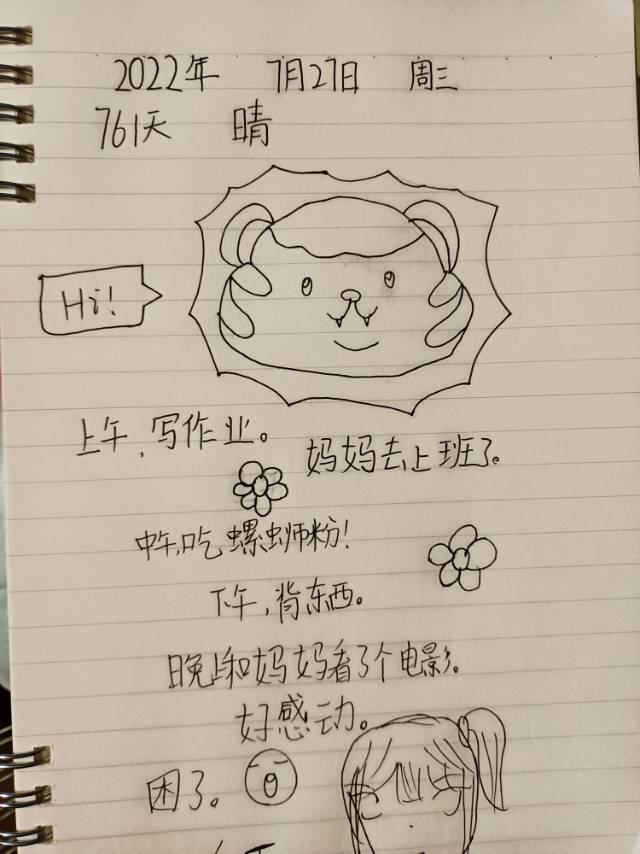 2022年 7月27日 周三
761天 晴
Hi!
上午,写作业。
妈妈去上班了。
中午,吃螺蛳粉!
下午,背东西。
晚上和妈妈看了个电影。
好感动。
困了。